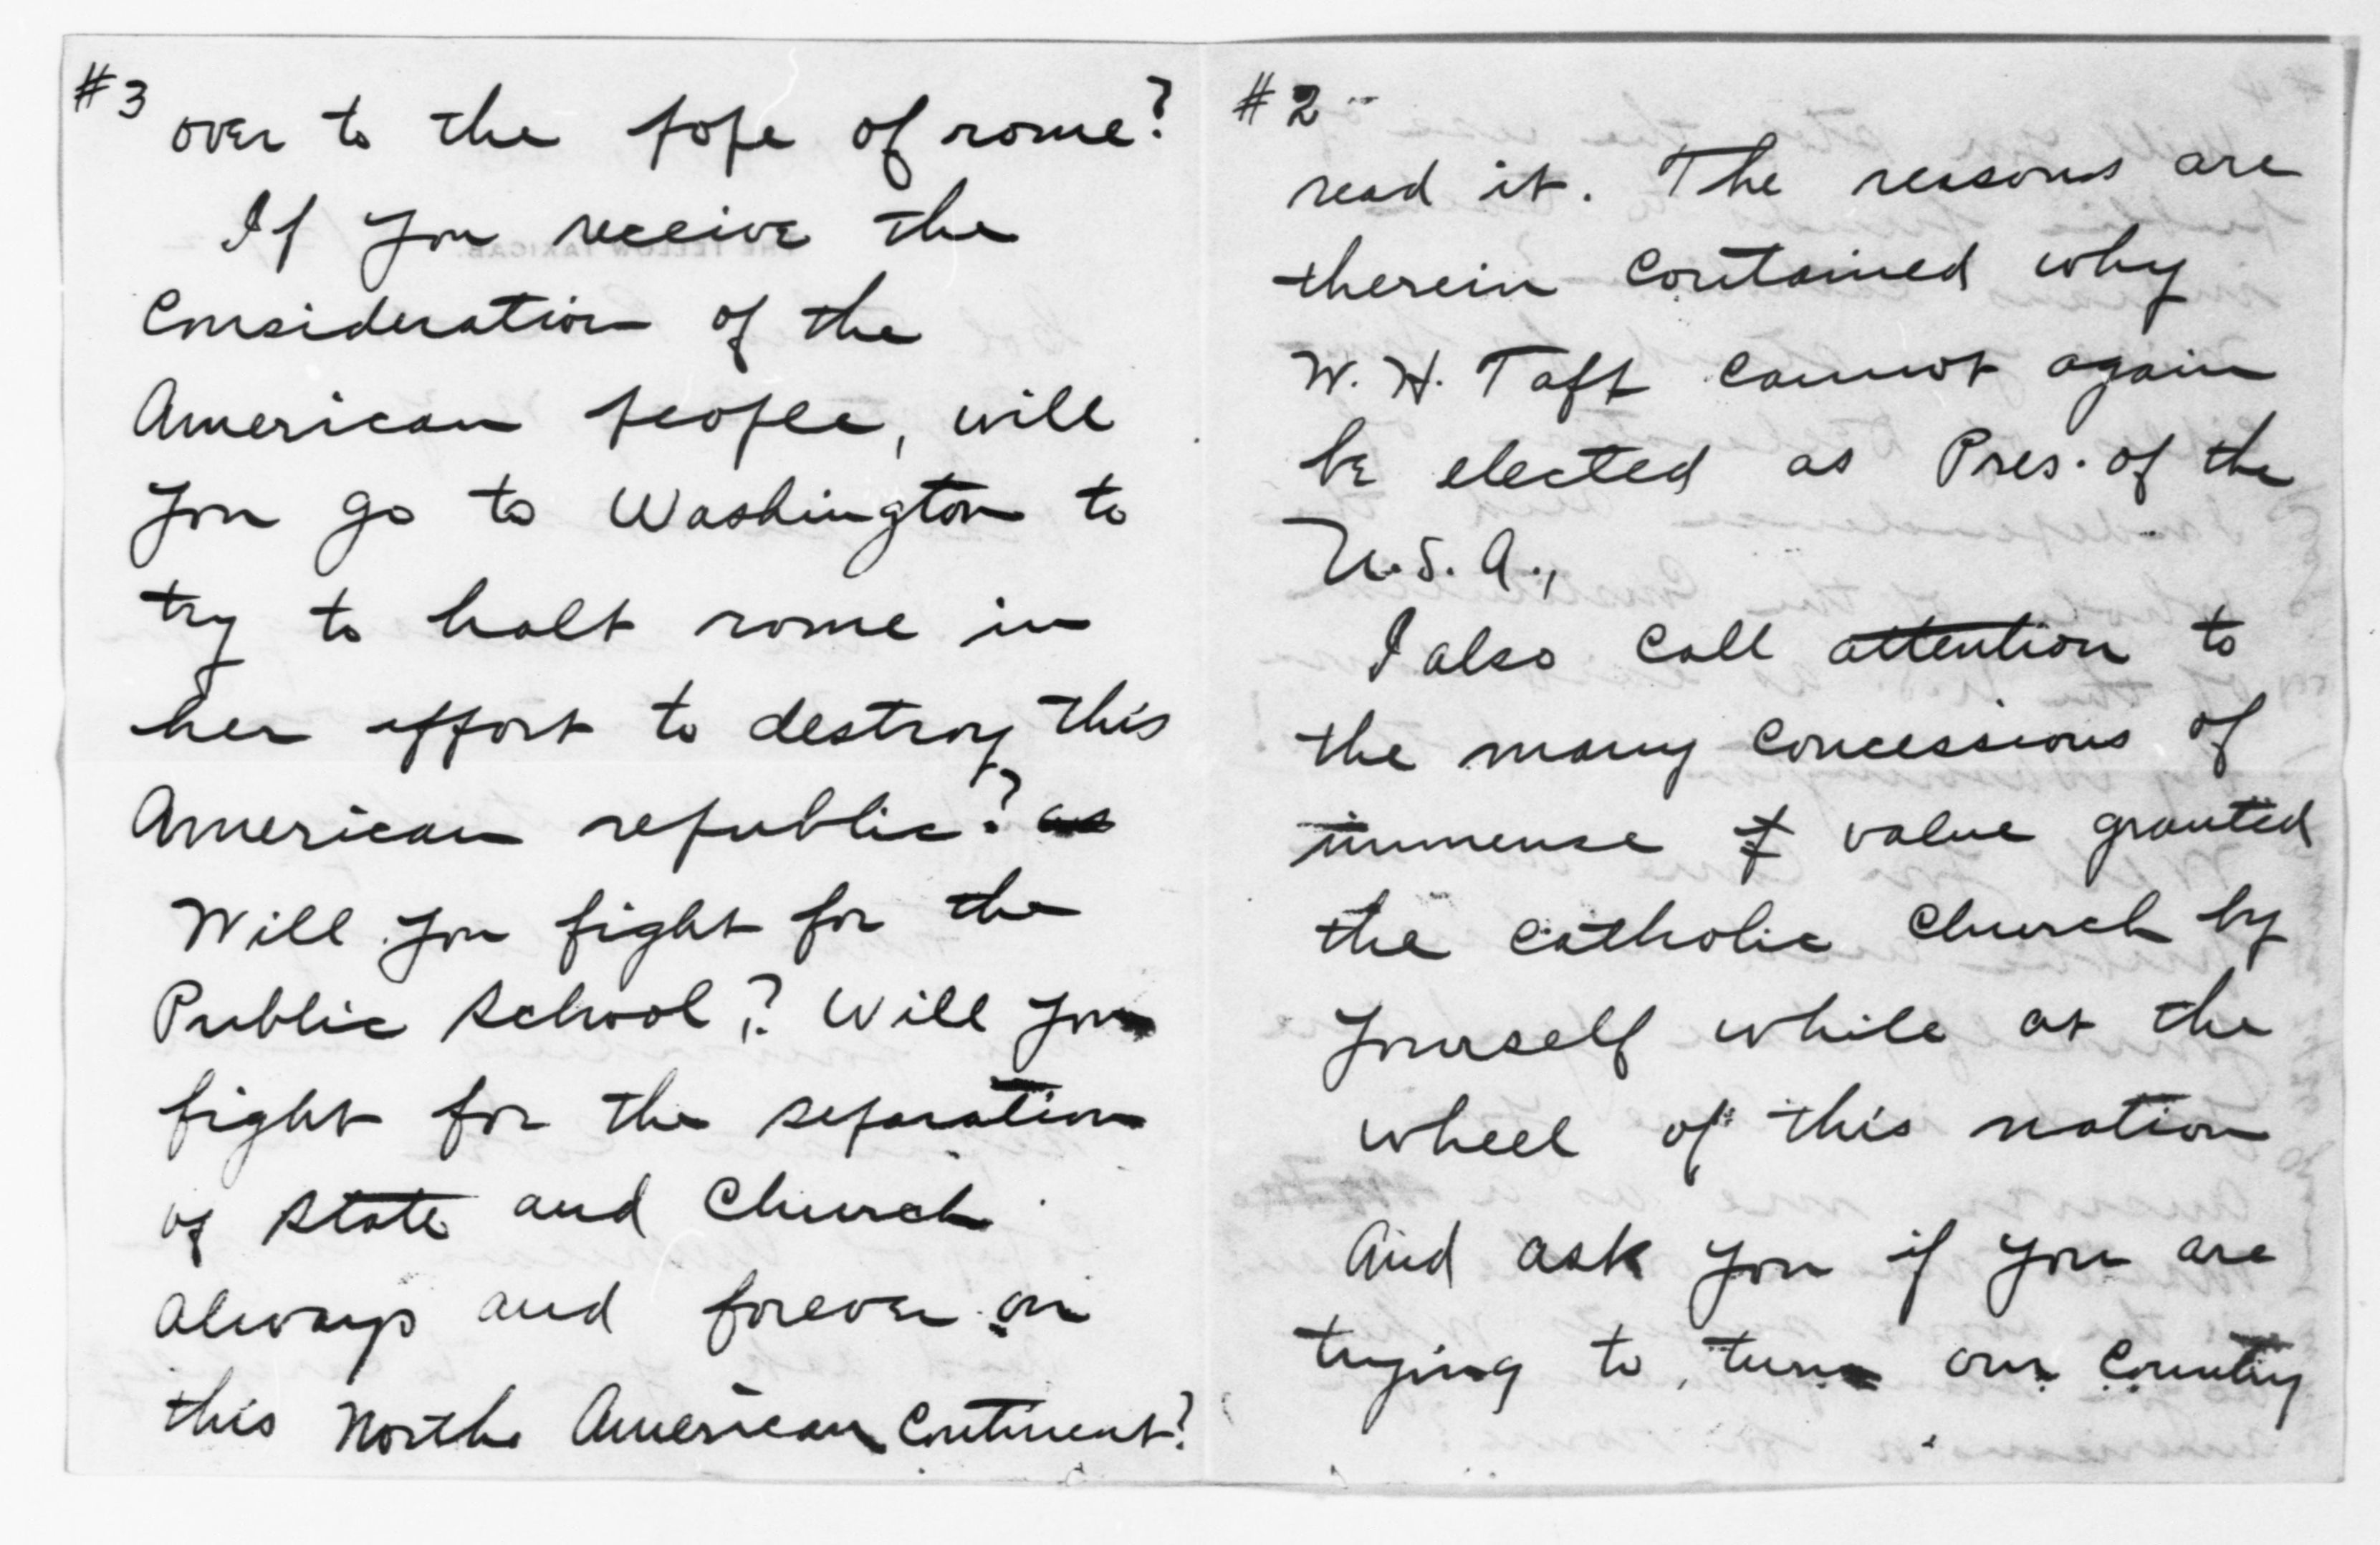 #2
read it. The reasons are
therein contained why
W. H. Taft cannot again
be elected as Pres. of the
U.S.A.,
I also call attention to
the many concessions of
immense $ value granted
the catholic church by
yourself while at the
wheel of this nation
And ask you if you are
trying to turn our country
#3
over to the pope of rome?
If you receive the
Consideration of the
American people, will
you go to Washington to
try to halt rome in
her effort to destroy this
American republic?
Will you fight for the
Public School? Will you
fight for the separation
of state and church
always and forever on
this North American Continent?